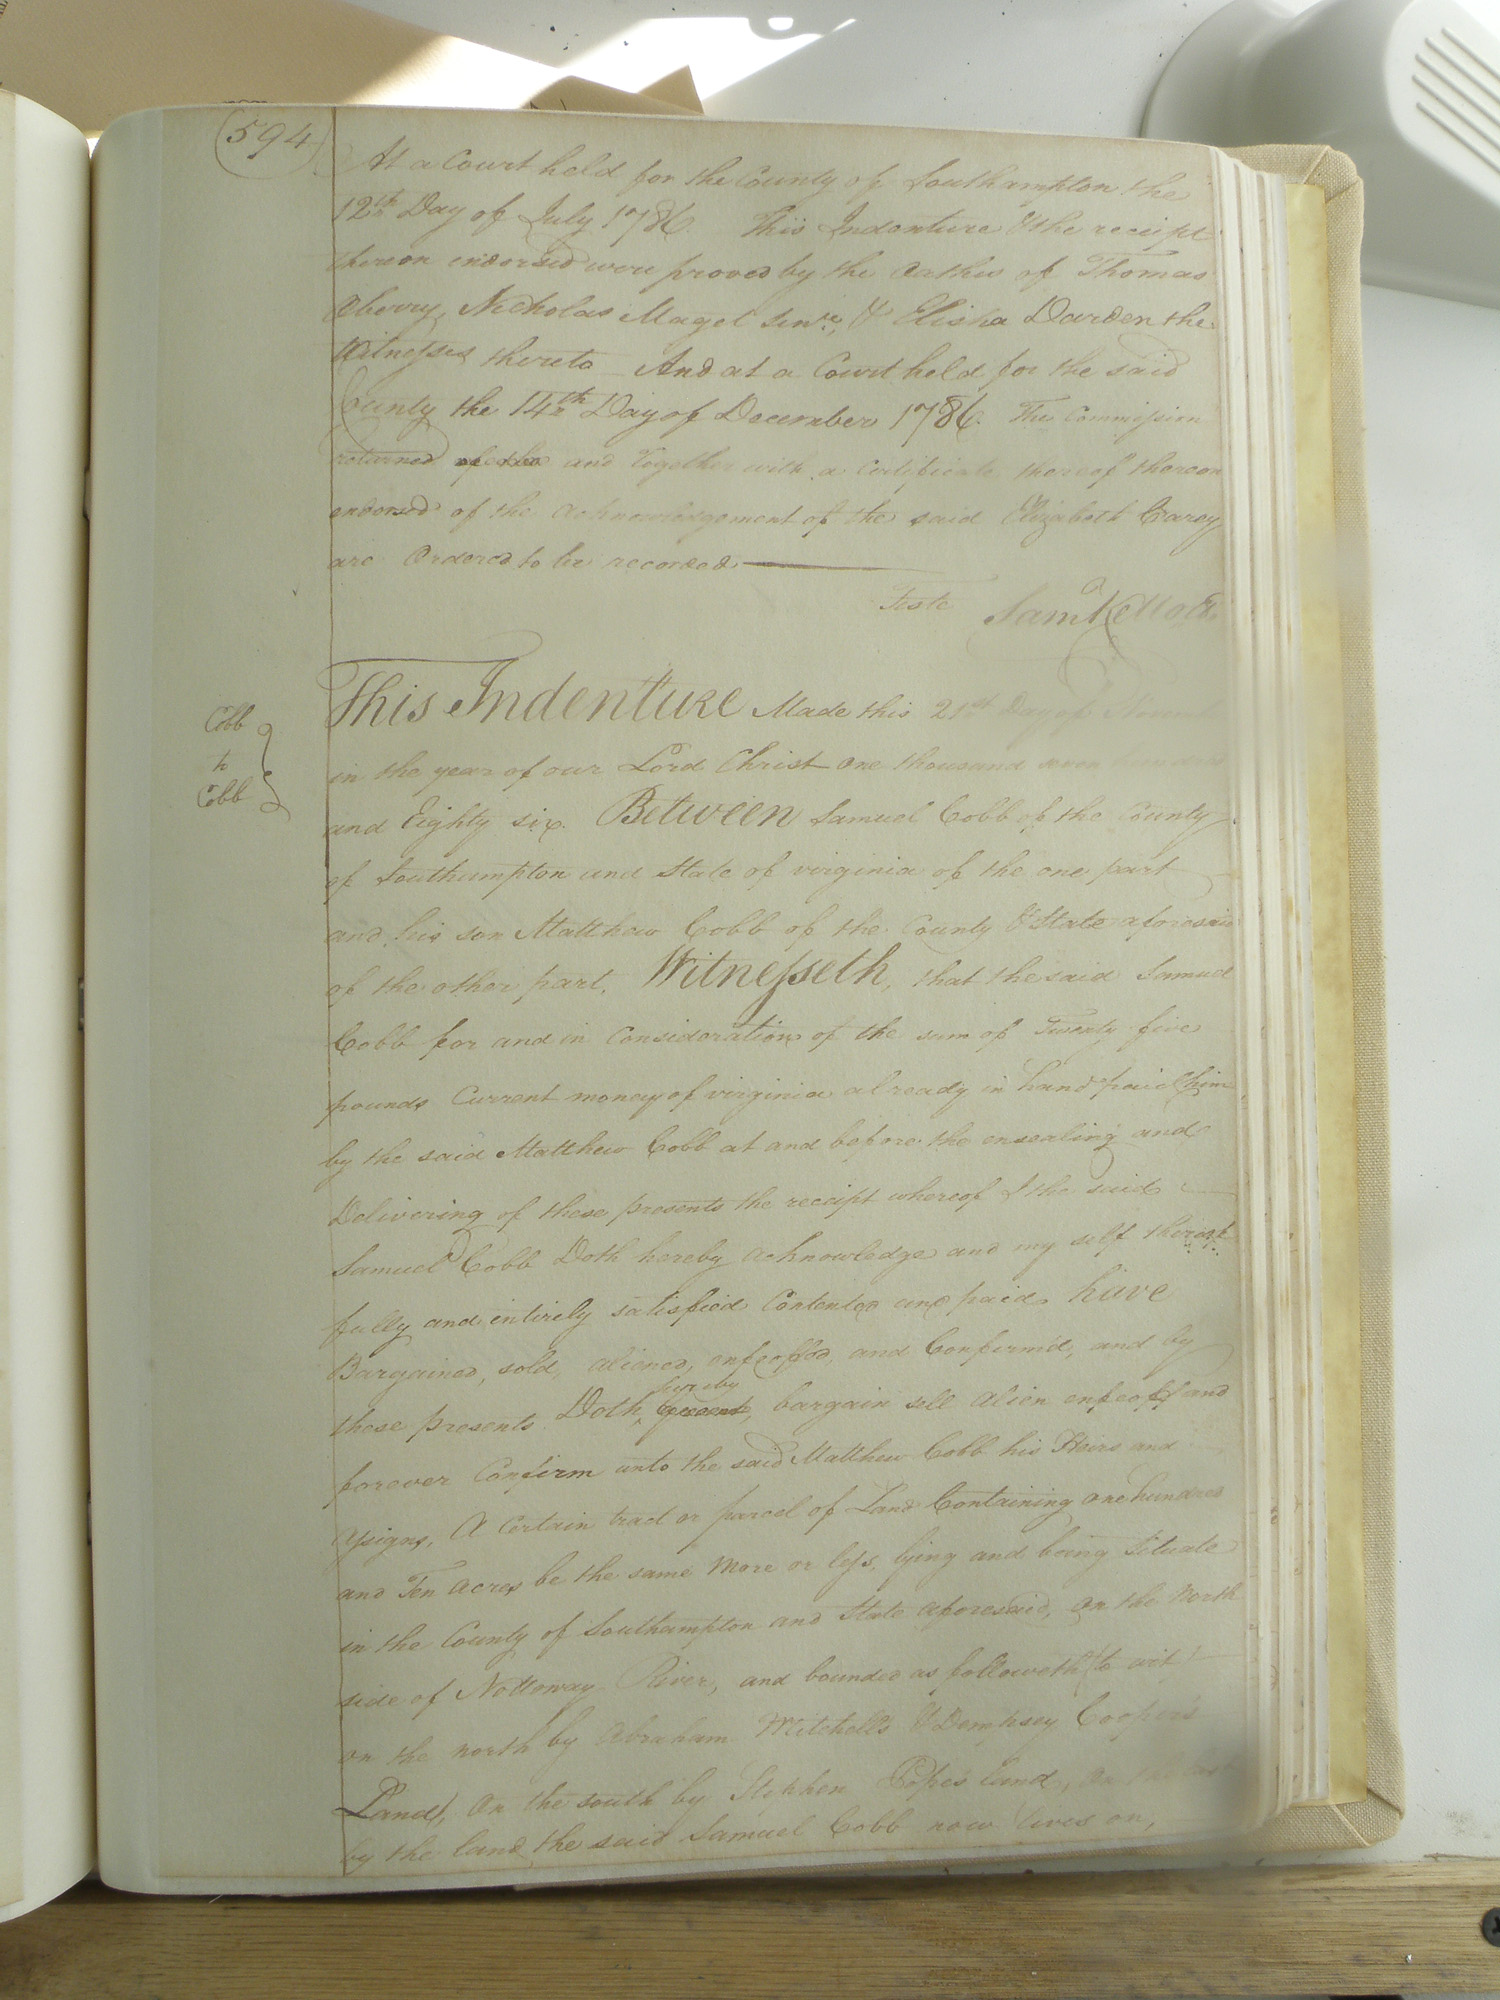 594
At a Court held for the County of Southampton the
12th Day of July 1786. This Indenture & the receipt
thereon endorsed were proved by the Oathes of Thomas
Oberry, Nicholas Maget Senr., & Elisha Darden the
Witnesses thereto And at a Court held for the said
County the 14th Day of December 1786. The Commission
returned and Together with a Certificate thereof thereon
endorsed of the Acknowledgement of the said Elizabeth Carey
are Ordered to be recorded
Teste Saml Kello
Cobb
to
Cobb
This Indenture Made this 21st Day of Novem
in the year of our Lord Christ one thousand seven hundred
and Eighty six. Between Samuel Cobb of the County
of Southampton and State of virginia of the one part
and his son Matthew Cobb of the County & State aforesaid
of the other part. Witnesseth, that the said Samuel
Cobb for and in Consideration of the sum of Twenty five
pounds Current money of virginia already in hand paid him
by the said Matthew Cobb at and before the ensealing and
Delivering of these presents the receipt whereof I the said
Samuel Cobb Doth hereby acknowledge and my self thereof
fully and intirely satisfied Contented and paid, have
Bargained, sold, aliened, enfeoffed, and Confirm'd, and by
these presents Doth hereby bargain sell alien enfeoff and
forever Confirm unto the said Matthew Cobb his Heirs and
assigns, A Certain tract or parcel of Land Containing one hundred
and Ten Acres be the same More or less, lying and being situate
in the County of Southampton and State aforesaid, on the North
side of Nottoway River, and bounded as followeth (to wit)
on the north by Abraham Mitchell's & Dempsey Cooper's
Land, on the south by Stephen Pope's land, on the East
by the land the said Samuel Cobb now lives on,